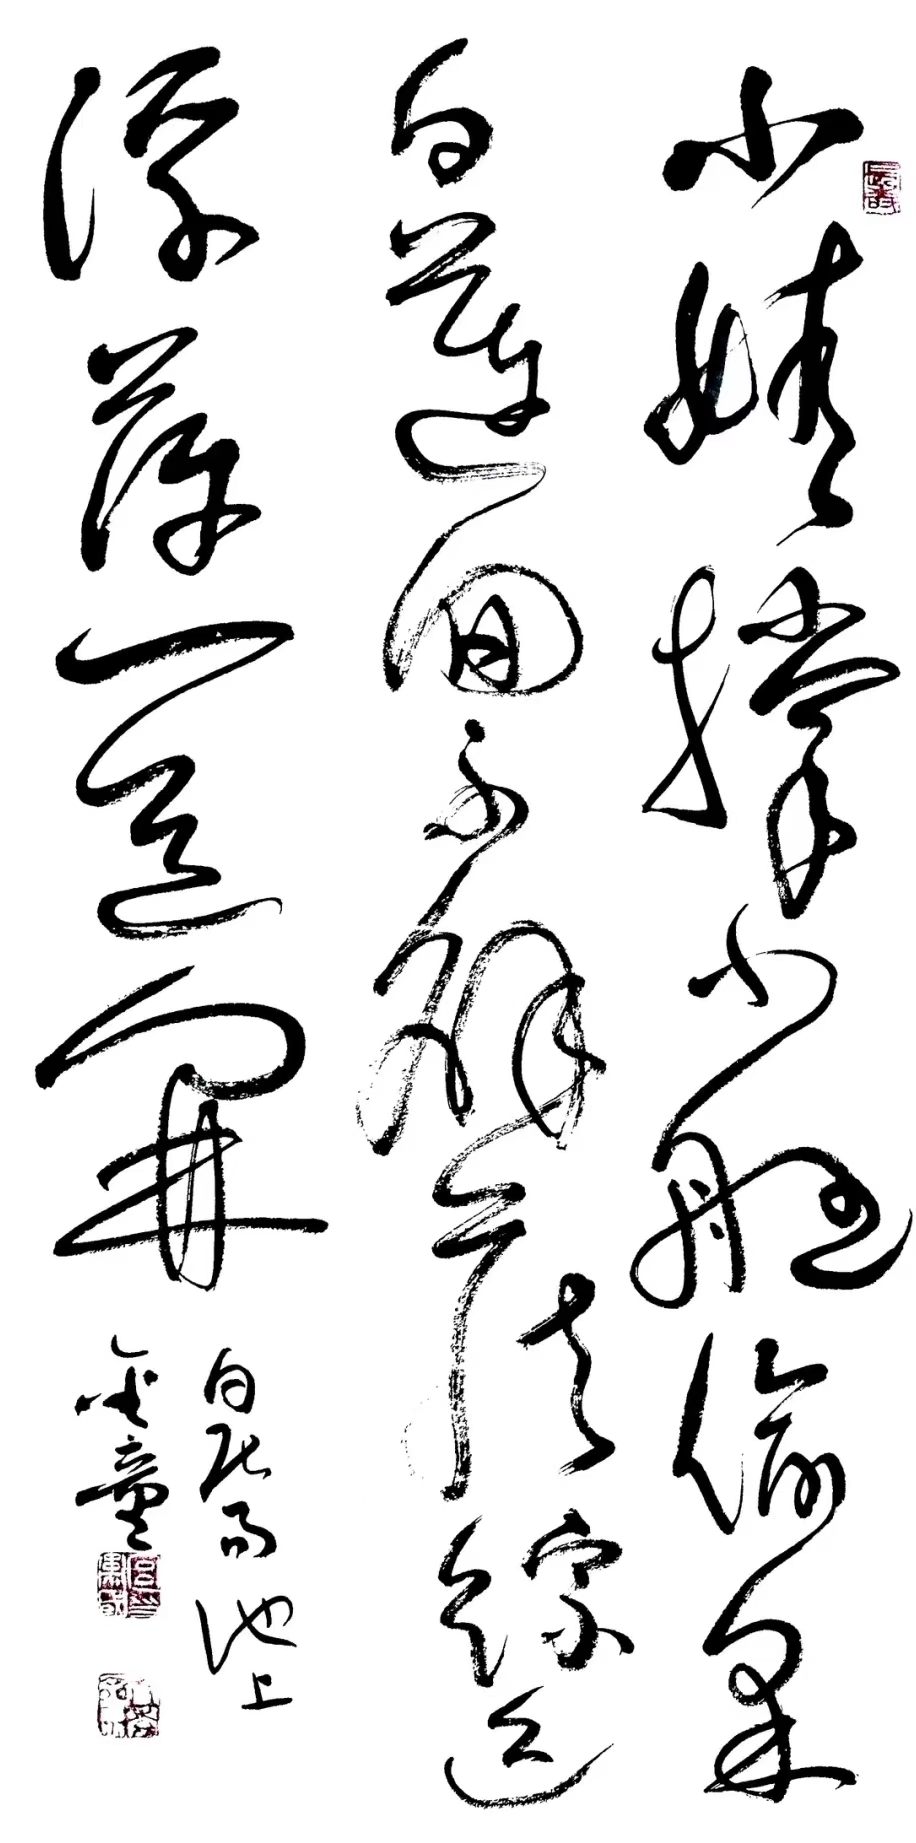 小娃撑小艇偷采
白莲回不解藏踪迹
浮萍一道開
白居易池上